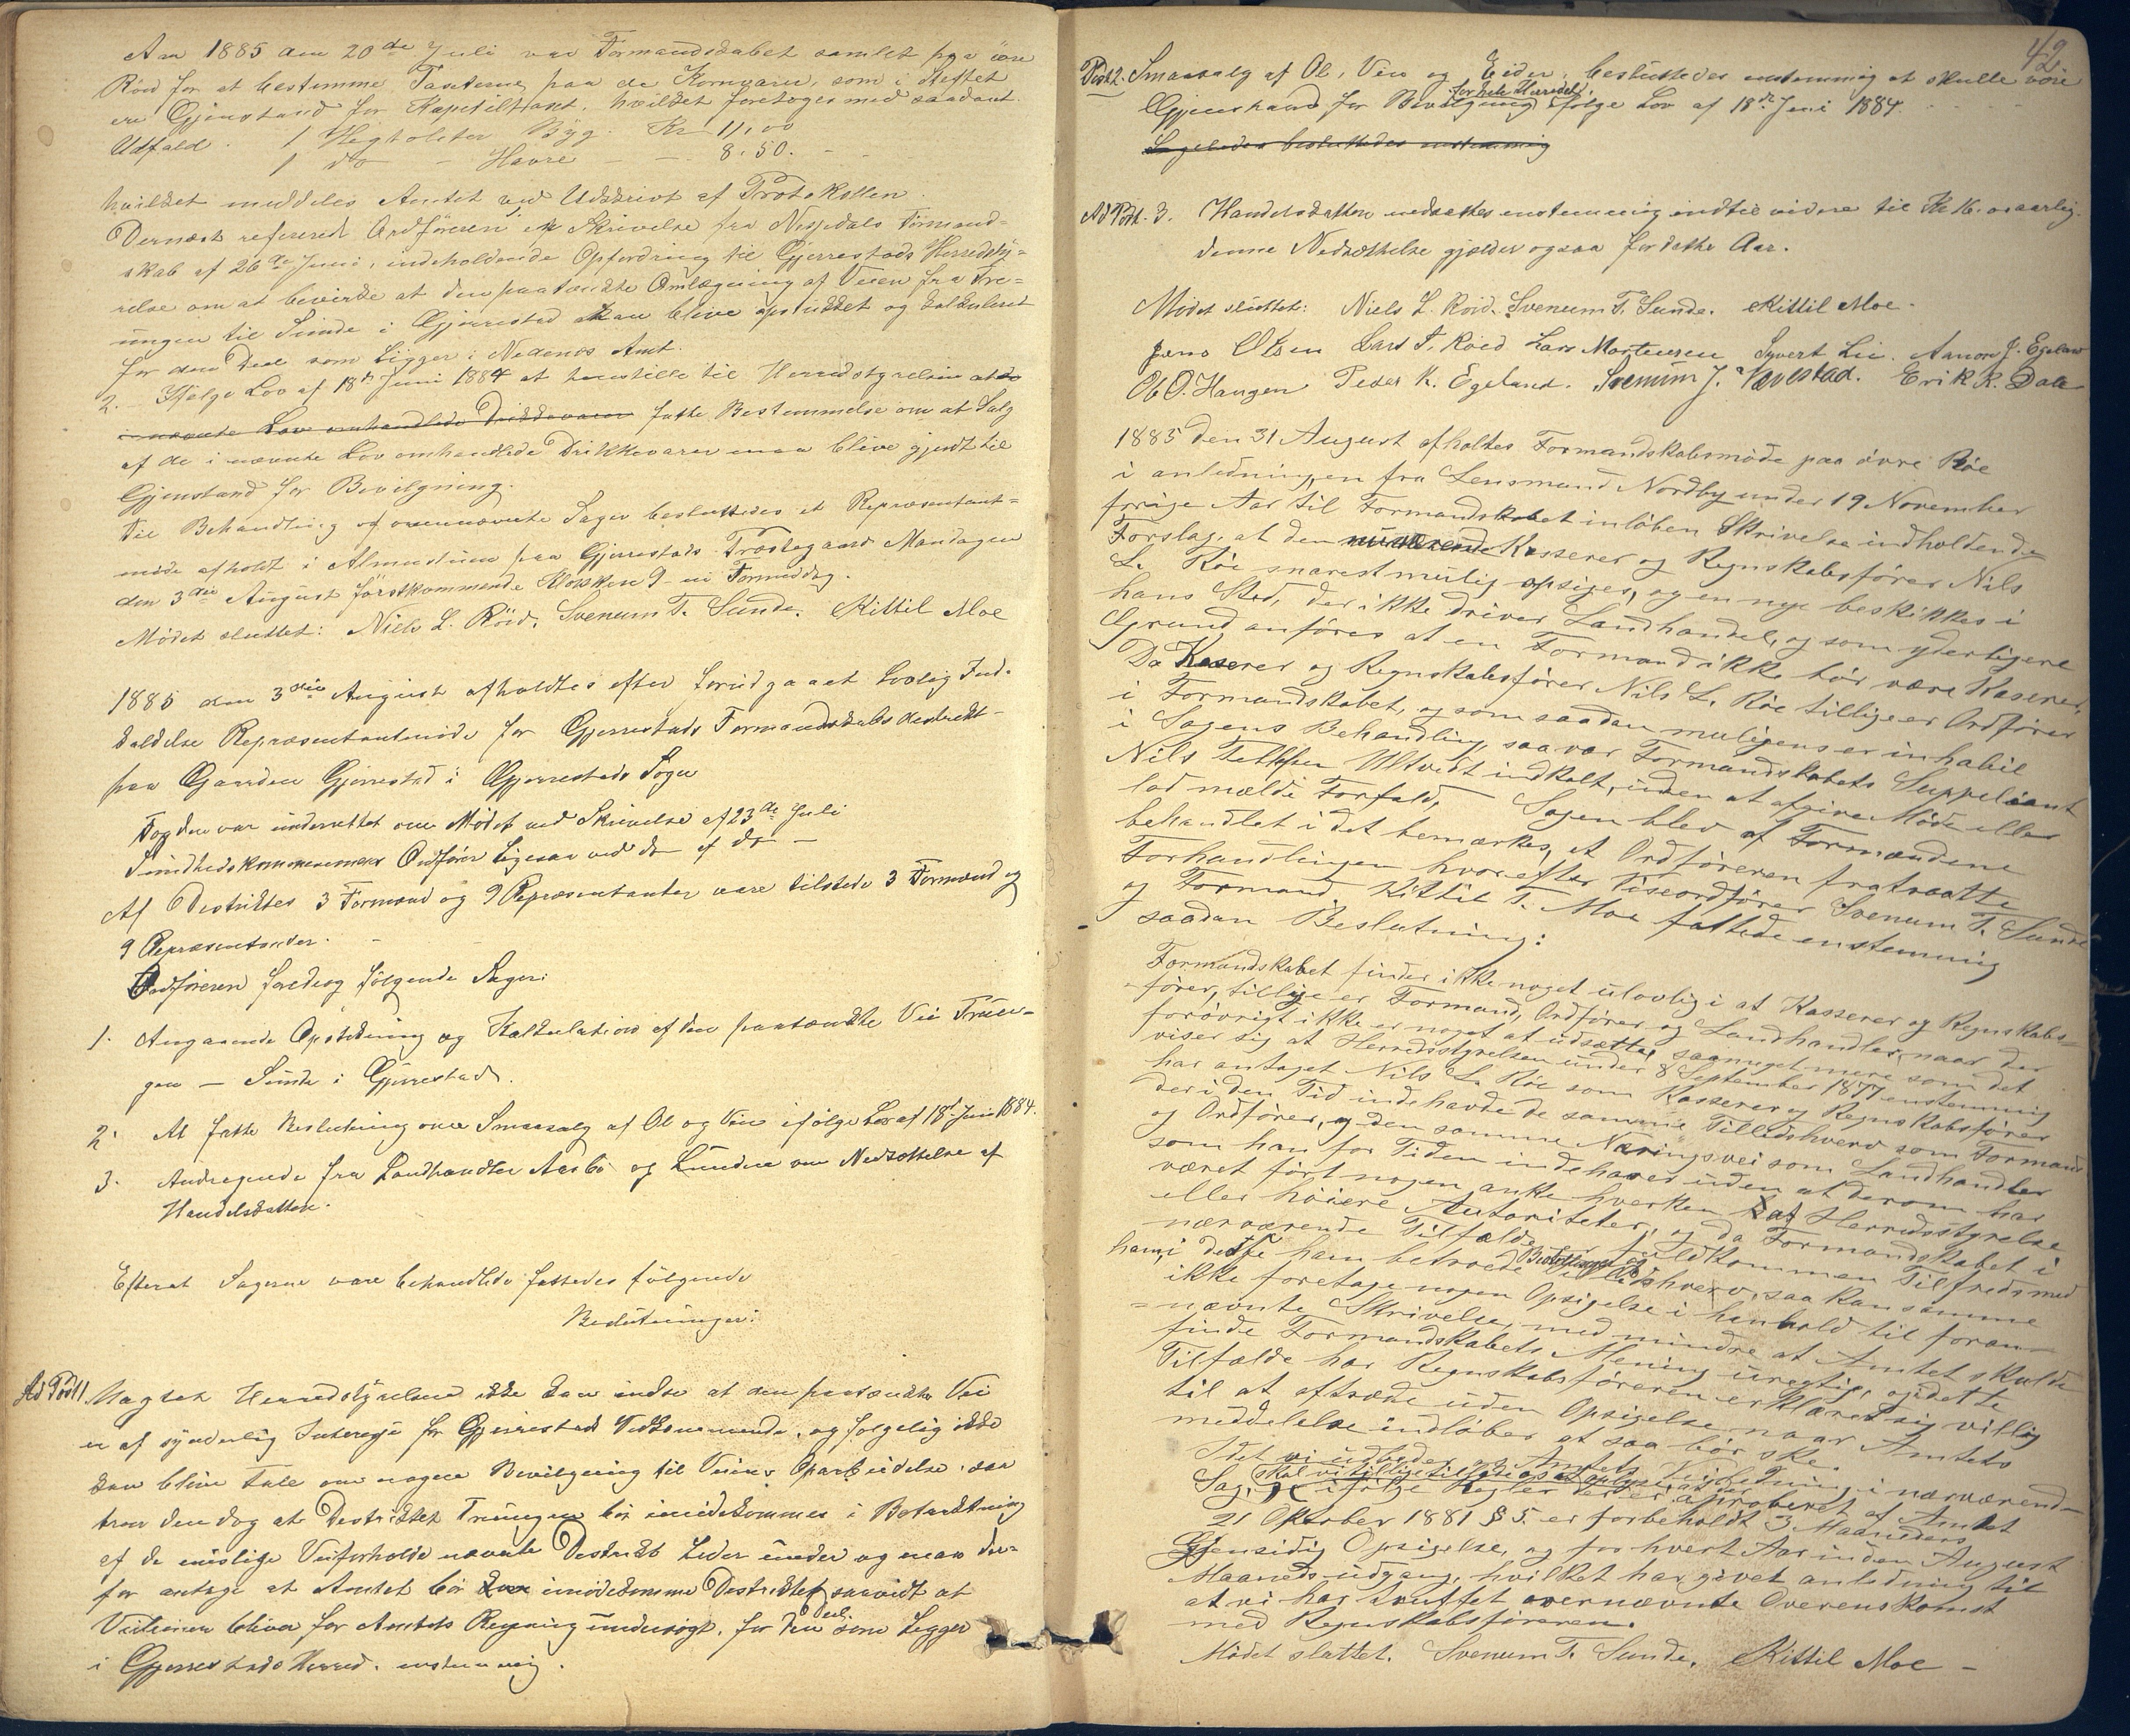 Aar 1885 den 20de Juli var Formandskabet samlet paa övre
Röid for at bestemme Taxterne paa de Kornvarer, som i Heftet
er Gjenstand for Kapiteltaxt, hvilket foretoges med saadant
Udfald. 1 Hegtoliter Byg. Kr 11,00
1 do — Havre — — 8.50. —
hvilket meddeles Amtet ved Udskrivt af Protokollen.
Dernæst refereret Ordföreren en Skrivelse fra Nissedals Formand=
skab af 26de Juni, indeholdende Opfordring til Gjerrestads Herredsty=
relse om at bevirke at den paatænkte Omlægning af Veien fra Tre=
ungen til Sunde i Gjerrestad kan blive opstukket og kalkuleret
for den Deel som ligger i Nedenes Amt.
2. Ifølge Lov af 18de Juni 1884 at henstille til Herredstyrelsen at de
i nævnte Lov omhandlede Drikkevarer fatte Bestemmelse om at Salg
af de i nævnte Lov omhandlede Drikkevarer maa blive gjordt til
Gjenstand for Bevilgning.
Til Behandling af ovennævnte Sager besluttedes et Repræsentant=
möde afholdt i Almuestuen paa Gjerrestads Præstegaard Mandagen
den 3die August förstkommende Klokken 9 — ni Formiddag.
Mödet sluttet: Niels L. Röid. Svenum T. Sunde. Kittil Moe
1885 den 3die August afholdtes efter forudgaaet lovlig Ind=
kaldelse Repræsentantmöde for Gjerrestads Formandskabsdistrikt —
paa Gaarden Gjerrestad i Gjerrestads Sogn
Fogden var underrettet om Mödet ved Skrivelse af 23de Juli
Sundhedskommissionens Ordförer ligesaa ved do af do —
Af Distriktes 3 Formænd og 9 Repræsentanter vare tilstede 3 Formænd og
9 Repræsentanter. —
Ordföreren foredrog fölgende Sager:
1. Angaaende Opstikning og Kalkulation af den paatænkte Vei Treun=
gen — Sunde i Gjerrestad.
2. At fatte Beslutning om Smaasalg af Öl og Vin ifölge Lov af 18de Juni 1884.
3. Andragende fra Landhandler Aasbö og Lunden om Nedsættelse af
Handelsskatten.
Efterat Sagerne vare behandlede fattedes fölgende
Beslutninger:
Ad Post 1. Uagtet Herredstyrelsen ikke kan indse at den paatænkte Vei
er af synderlig Interesse for Gjerrestads Vedkommende, og folgelig ikke
kan blive Tale om nogen Bevilgning til Veiens Oparbeidelse, saa
tror den dog at Distriktet Treungen bör imödekommes i Betraktning
af de uislige Veiforholde nævnte Distrikt lider under og maa der=
for antage at Amtet bör imödekomme Distriktet saavidt at
Veilinien bliver for Amtets Regning undersögt, for den Deel som ligger
i Gjerrestads Herred. enstemmig.
42
Post 2. Smaasalg af Öl, Vin og Cider, besluttedes enstemmig at skulle være
Gjenstand for Bevilgning for hele Herredet, ifölge Lov af 18de Juni 1884.
Ligeledes besluttedes enstemmig
Ad Post. 3. Handelsskatten nedsættes enstemmig indtil videre til Kr 16. aarlig.
denne Nedsættelse gjælder ogsaa for dette Aar.
Mödet sluttet: Niels L. Röid. Svenum T. Sunde. Kittil Moe.
Jens Olsen Lars T. Röed Lars Mortensen Syvert Lie. Aanon J. Egeland
Ole O. Haugen Peder K. Egeland. Svenum J. Vævestad. Erik K. Dale
1885 den 31 August afholtes Formandskabsmöde paa övre Röe
i anledning en fra Lensmand Nordby under 19 November
forige Aar til Formandskabet inlöben Skrivelse indholdende
Forslag, at den nuværende Kasserer og Regnskabsförer Nils
L. Röe snarest mulig opsiges, og en nye beskikkes i
hans Sted, der ikke driver Landhandel, og som yderligere
Grund anföres at en Formand ikke bör være Kaserer.
Da Kaserer og Regnskabsförer Nils L. Röe tillige er Ordförer
i Formandskabet, og som saadan muligens er inhabil
i Sagens Behandling, saa var Formandskabets Suppeleant
Nils Tellefsen Ulltveit indkalt, uden at afgive Möde eller
lod mælde Forfald, Sagen blev af Formændene
behandlet i det bemærkes, at Ordföreren fratraatte
Forhandlingen hvorefter Viseordförer Svenum T. Sunde
og Formand Kittil T. Moe fattede enstemmig
saadan Beslutning:
Formandskabet finder ikke noget ulovlig i at Kasserer og Regnskabs=
förer, tillige er Formand, Ordförer og Landhandler, naar der
foröwrigt ikke er noget at udsætte, saameget mere som det
viser sig at Herredsstyrelsen under 8 September 1877 enstemmig
har antaget Nils L. Röe som Kasserer og Regnskabsförer
der i den Tid indehavde de samme Tillidshverv som Formand
og Ordförer, og den samme Næringsvei som Landhandler
som han for Tiden indehaver uden at derom har
været fört nogen anke hverken af Herredsstyrelse
eller höiere Autoriteter, og da Formandskabet i
nærværende Tilfælde er fuldkommen Tilfreds med
ham, i dette ham betroede Bestillinger og Tillidshverv, saa kan samme
ikke foretage nogen Opsigelse i henhold til foran=
=nævnte Skrivelse, med mindre at Amtet skulde
finde Formandskabets Mening uregtig, og i dette
Tilfælde har Regnskabsföreren erklæret sig villig
til at aftræde uden Opsigelse naar Amtets
meddelelse indlöber at saa bör ske.
Idet vi udbeder os Amtets Veiledning i nærværende
Sag, skal vi tillige tilföie at ifölge Regler approberet af Amtet
21 Oktober 1881 § 5. er forbeholdt 3 Maaneders
Gjensidig Opsigelse, og for hvert Aar inden August
Maaneds udgang, hvilket har givet anledning til
at vi har truffet overnævnte Overenskomst
med Regnskabsföreren.
Mödet sluttet. Svenum T. Sunde. Kittil Moe —